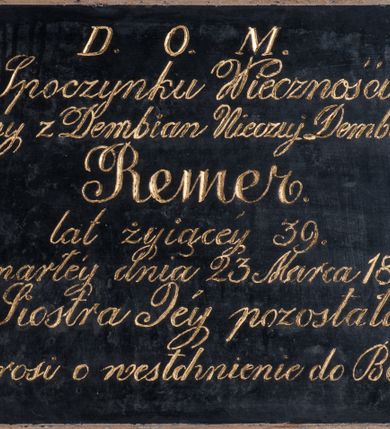 D. O. M.
Spoczynku Wieczności
ny z Dembian Nieczuj Demb
Remer.
lat żyiącey 39.
marłéy dnia 23 Marca 18
Siostra Jéy pozostała
rosi o westchnienie do Bo